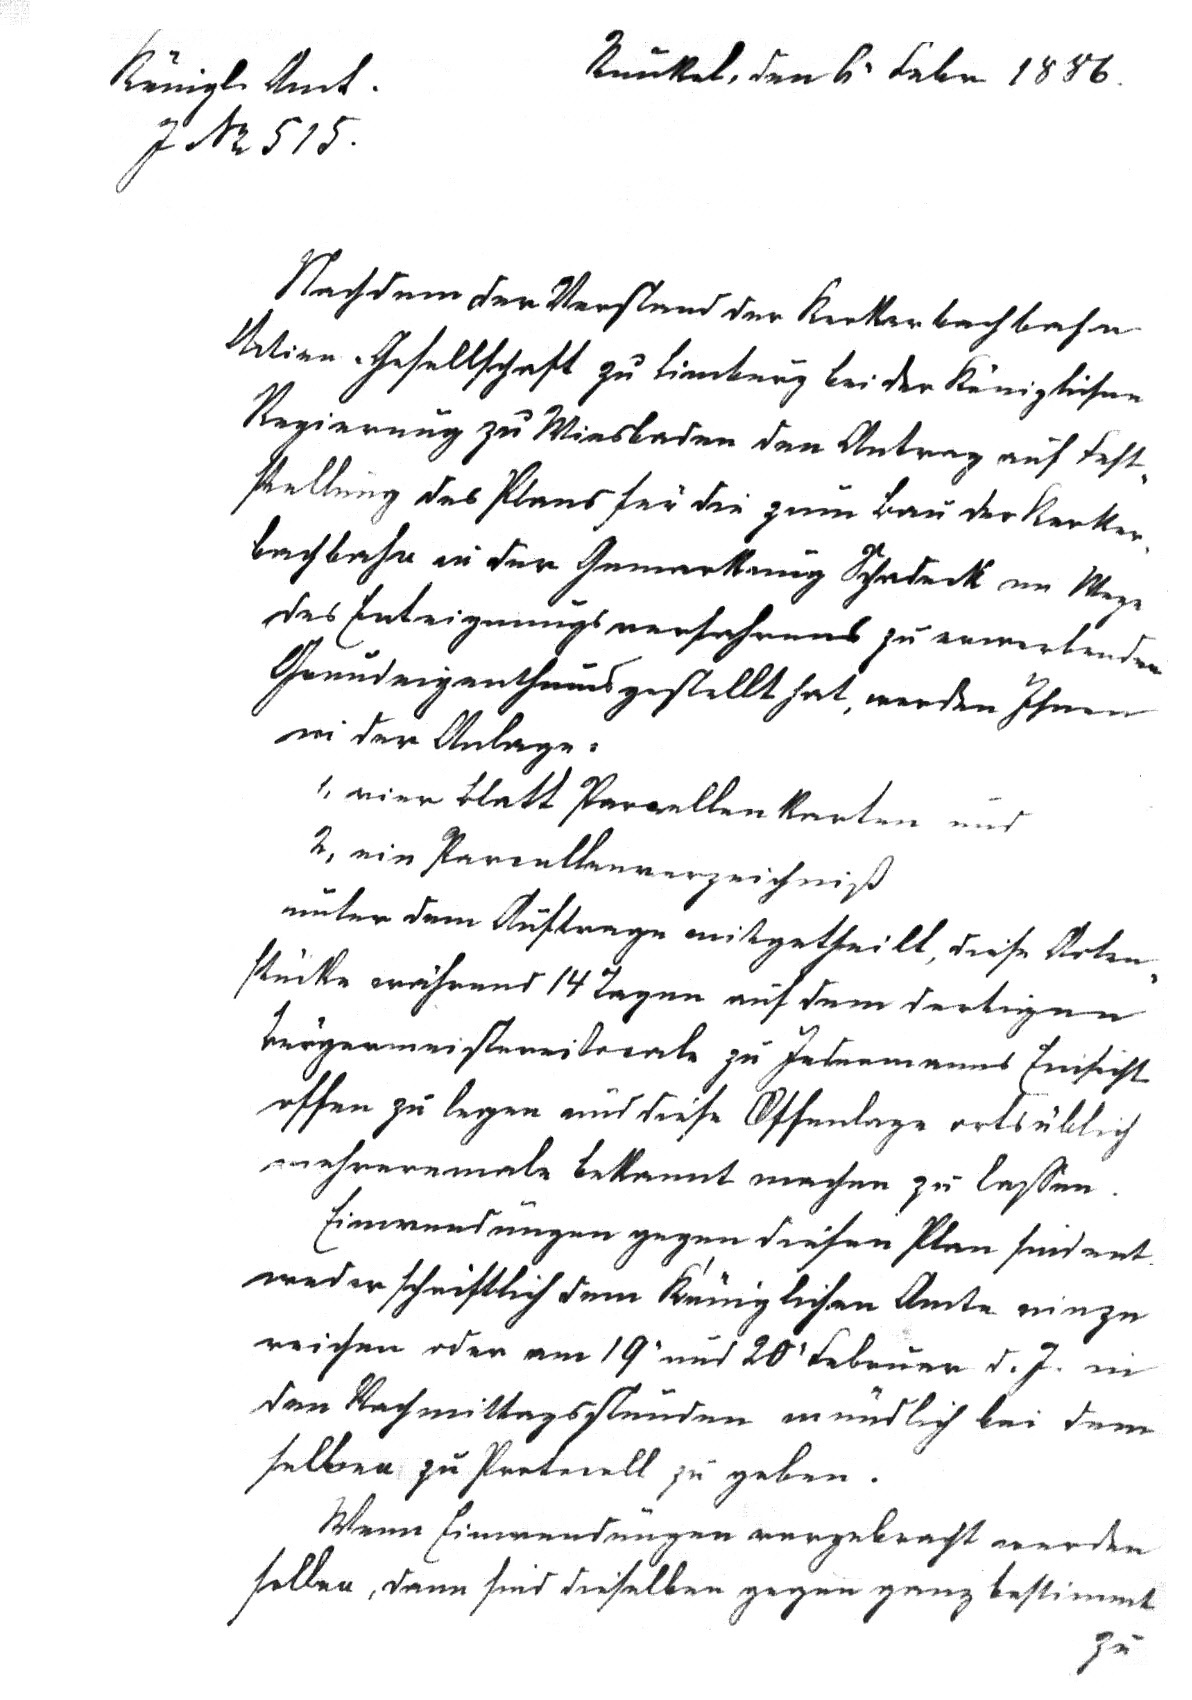 Königl. Amt.
Runkel, den 6' Febr 1886.
J № 515.
Nachdem der Vorstand der Kerkerbachbahn
Actien-Gesellschaft zu Limburg bei der Königlichen
Regierung zu Wiesbaden den Antrag auf Fest-
stellung des Plans für die zum Bau der Kerker-
bachbahn in der Gemarkung Schadeck im Wege
des Enteignungsverfahrens zu erwerbenden
Grundeigenthums gestellt hat, werden Ihnen
in der Anlage:
1, vier Blatt Parcellenkarten und
2, ein Parcellenverzeichniß
unter dem Auftrage mitgetheilt, diese Acten-
stücke während 14 Tagen auf dem dortigen
Bürgermeistereilocale zu Jedermanns Einsicht
offen zu legen und diese Offenlage ortsüblich
mehreremale bekannt machen zu lassen.
Einwendungen gegen diesen Plan sind ent-
weder schriftlich dem Königlichen Amte einzu
reichen oder am 19' und 20' Februar d. J. in
den Nachmittagsstunden mündlich bei dem
selben zu Protocoll zu geben.
Wenn Einwendungen vorgebracht werden
sollen, dann sind dieselben gegen ganz bestimmt
zu